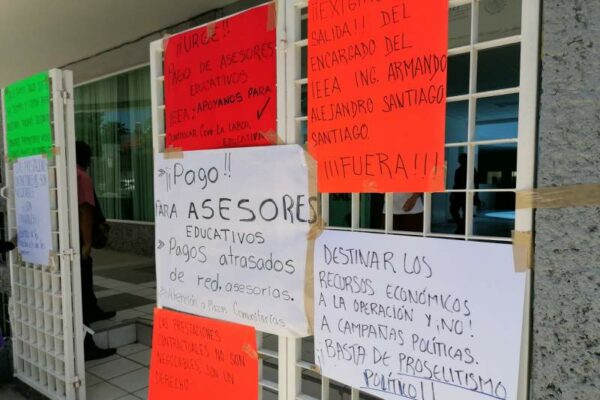 ¡¡URGE!!
PAGO DE ASESORES
EDUCATIVOS
IEEA: ¡APOYANOS PARA
CONTINUAR CON LA LABOR
EDUCATIVA
¡¡EXIGIMOS
SALIDA!! DEL
ENCARGADO DEL
IEEA ING. ARMANDO
ALEJANDRO SANTIAGO
SANTIAGO.
¡¡¡FUERA!!!
» ¡¡Pago!!
PARA ASESORES
EDUCATIVOS
» Pagos atrasados
de red, asesorias.
» Atención a Plazas Comunitarias
DESTINAR LOS
RECURSOS ECONÓMICOS
A LA OPERACIÓN Y, ¡NO!
A CAMPAÑAS POLÍTICAS.
¡¡BASTA DE PROSELITISMO
POLÍTICO!!
LAS PRESTACIONES
CONTRACTUALES NO SON
NEGOCIABLES, SON UN
DERECHO